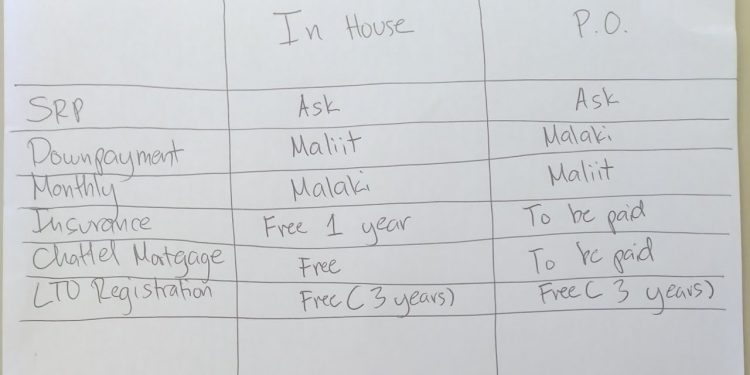 In House P.O.
SRP Ask Ask
Downpayment Maliit Malaki
Monthly Malaki Maliit
Insurance Free 1 year To be paid
Chattel Mortgage Free To be paid
LTO Registration Free (3 years) Free ( 3 years)